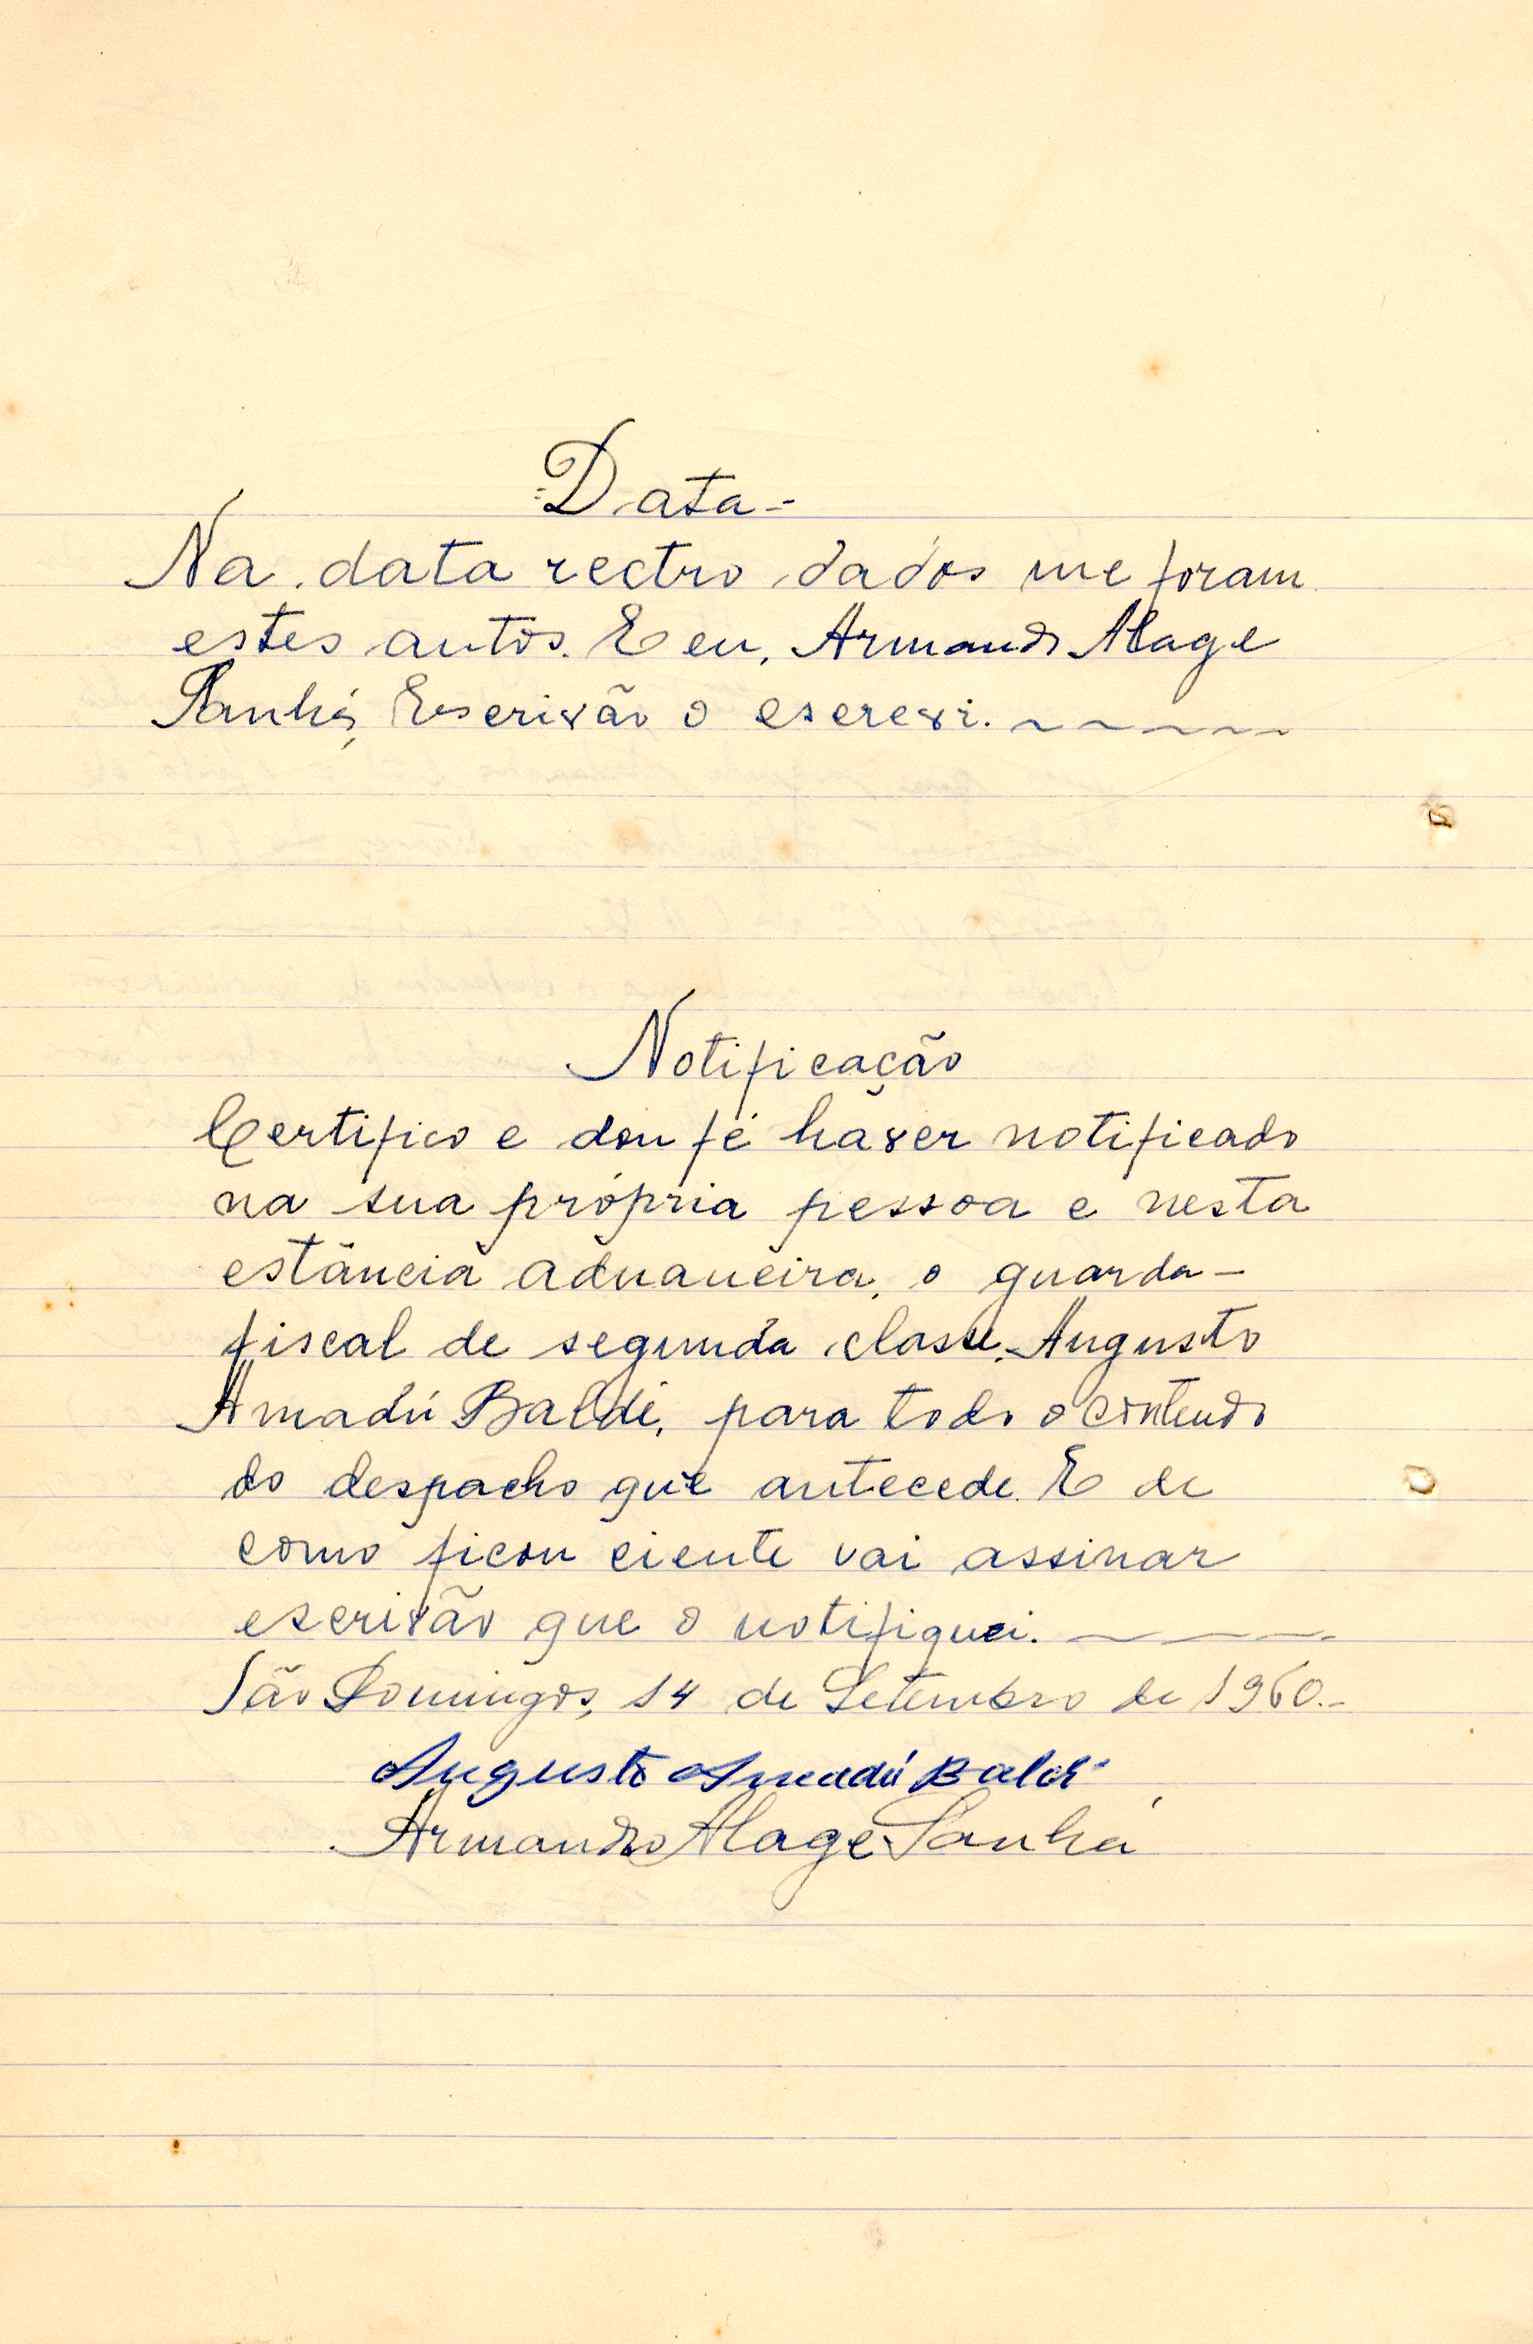 =Data=
Na data rectro dados me foram
estes autos. E eu, Armando Alage
Sanhá, Escrivão o escrevi. ~ ~ ~ ~ ~ ~
Notificação
Certifico e dou fé haver notificado
na sua própria pessoa e nesta
estância aduaneira, o guarda-
fiscal de segunda classe, Augusto
Amadú Baldé, para todo o contendo
do despacho que antecede. E de
como ficou ciente vai assinar
escrivão que o notifiquei. ~ ~ ~ ~
São Domingos, 14 de Setembro de 1960.-
Augusto Amadú Baldé
Armando Alage Sanhá